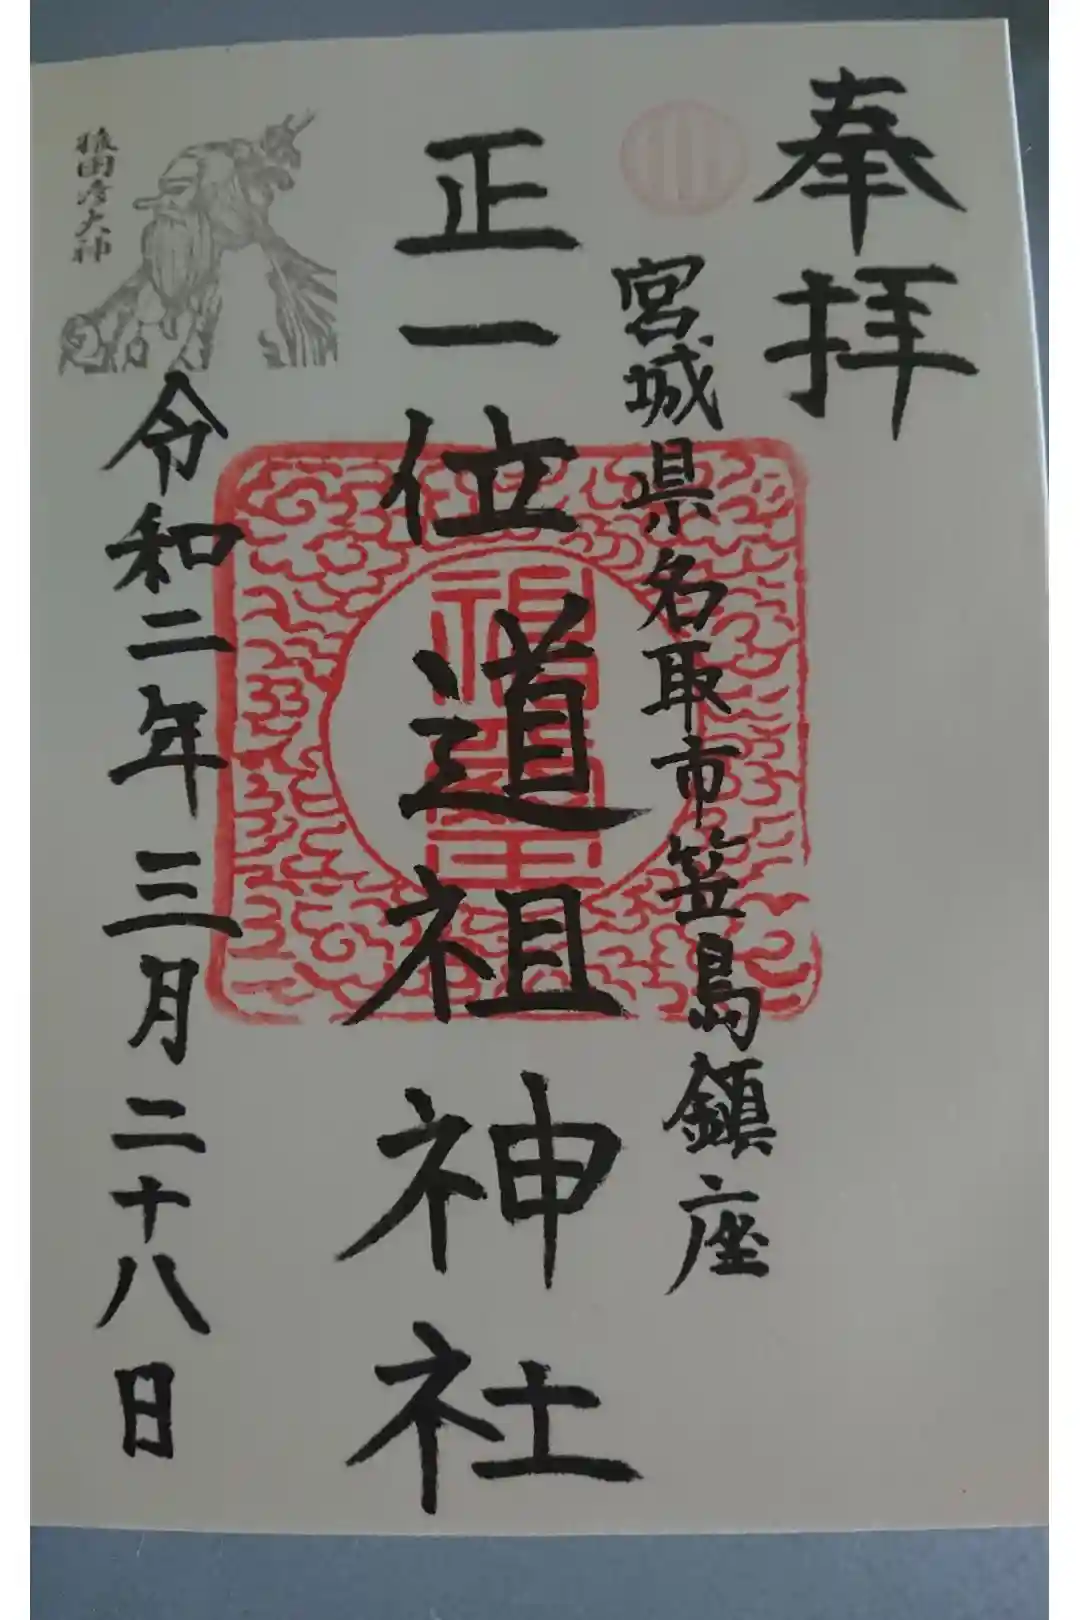 奉拝
宮城県名取市笠島鎮座
正一位道祖神社
猿田彦大神
令和二年三月二十八日